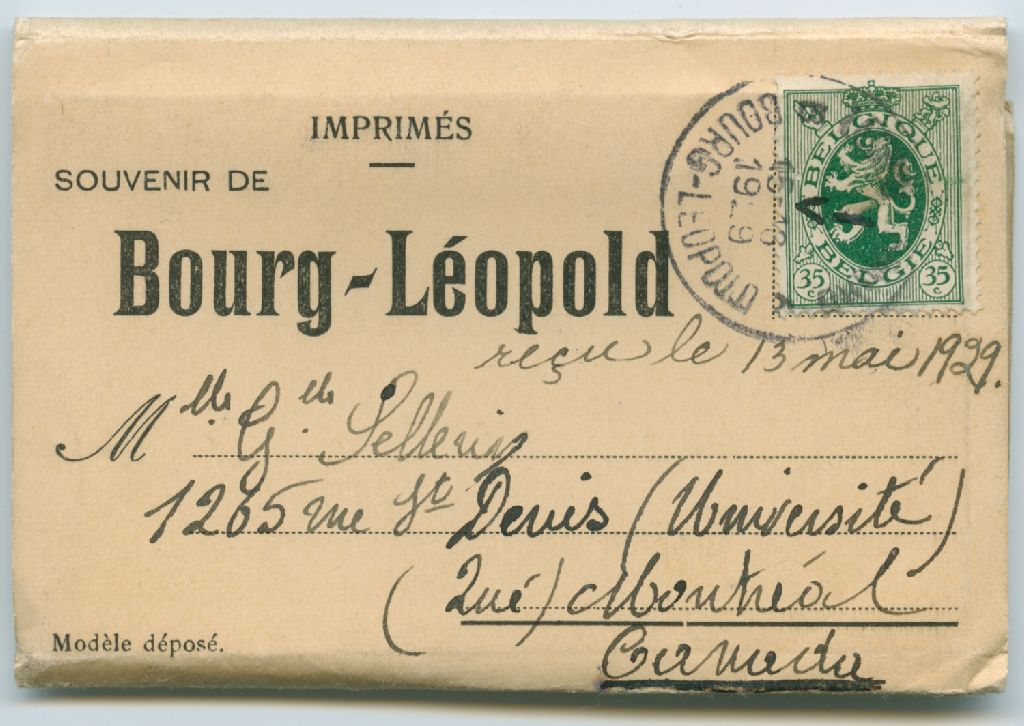 IMPRIMÉS
SOUVENIR DE
Bourg-Léopold
BOURG-LÉOPOLD
19
9
BELGIQUE
BELGIË
35 c 35 c
reçu le 13 mai 1929.
Mlle G. Pellerin
1265 rue St Denis (Université)
(Qué) Montréal
Canada
Modèle déposé.